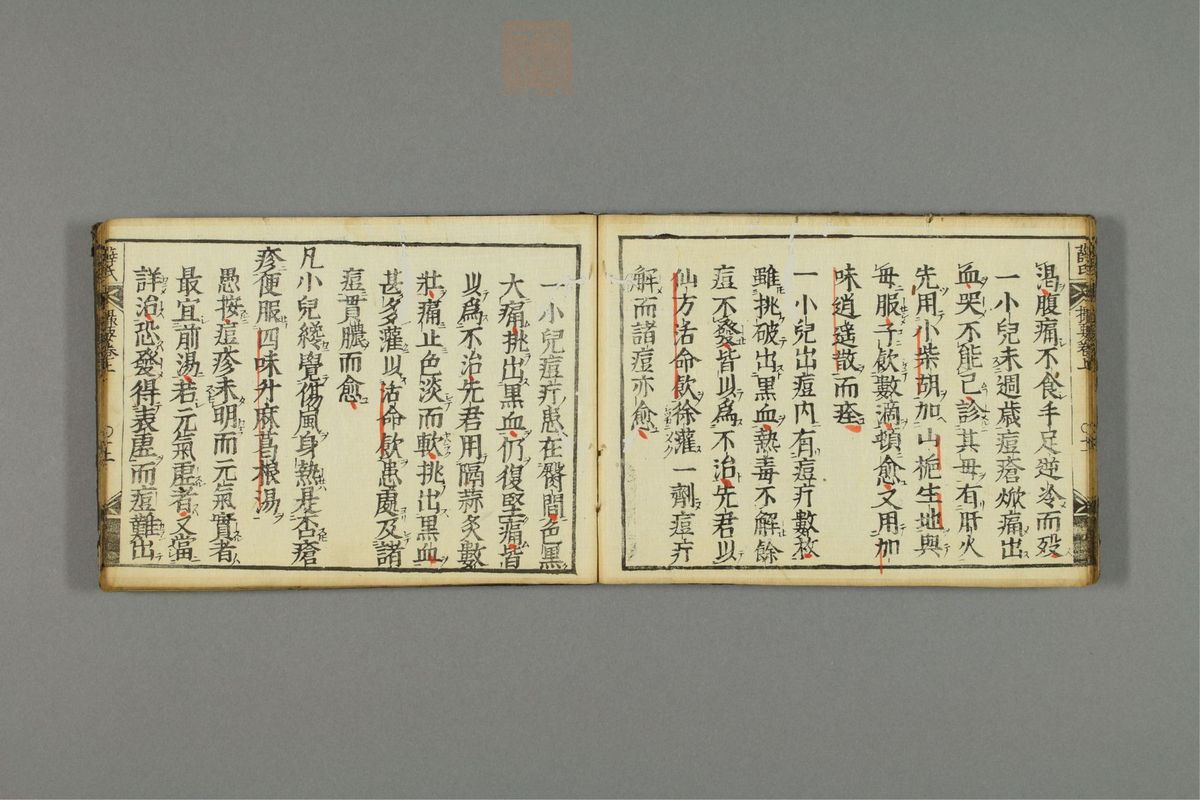 渇腹痛不食手足逆冷而歿
一小兒未週歳痘瘡焮痛出
血哭不能已診其母有肝火
先用小柴胡加山梔生地與
毎服子飲數滴頓愈又用加
味逍遥散而痊
一小兒出痘内有痘疔數枚
雖挑破出黒血熱毒不解餘
痘不發皆以爲不治先君以
仙方活命飲徐灌一劑痘疔
解而諸痘亦愈
一小兒痘疔患在臀間色黒
大痛挑出黒血仍復堅痛皆
以爲不治先君用隔蒜灸數
壯痛止色淡而軟挑出黒血
甚多灌以活命飲患處及諸
痘貫膿而愈
凡小兒纔覺傷風身熱是否瘡
疹便服四味升麻葛根湯
愚按痘疹未明而元氣實者
最宜前湯若元氣虚者又當
詳治恐發得表虚而痘難出
薛氏